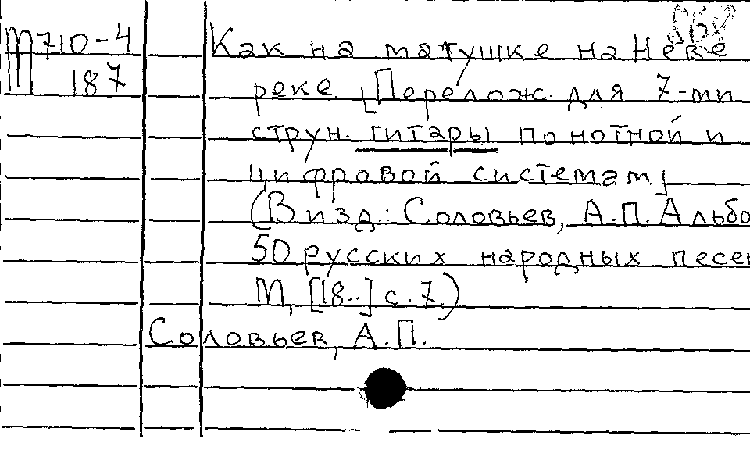 868
М710-4
187
Как на матушке на Неве
реке [Перелож. для 7-ми
струн. гитары по нотной и
цифровой системам]
(В изд.: Соловьев, А.П. Альбо
50 русских народных песен
М, [18..] с. 7.)
Соловьев, А.П.